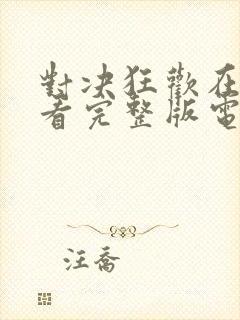 對決狂歡在
看完整版電
汪喬